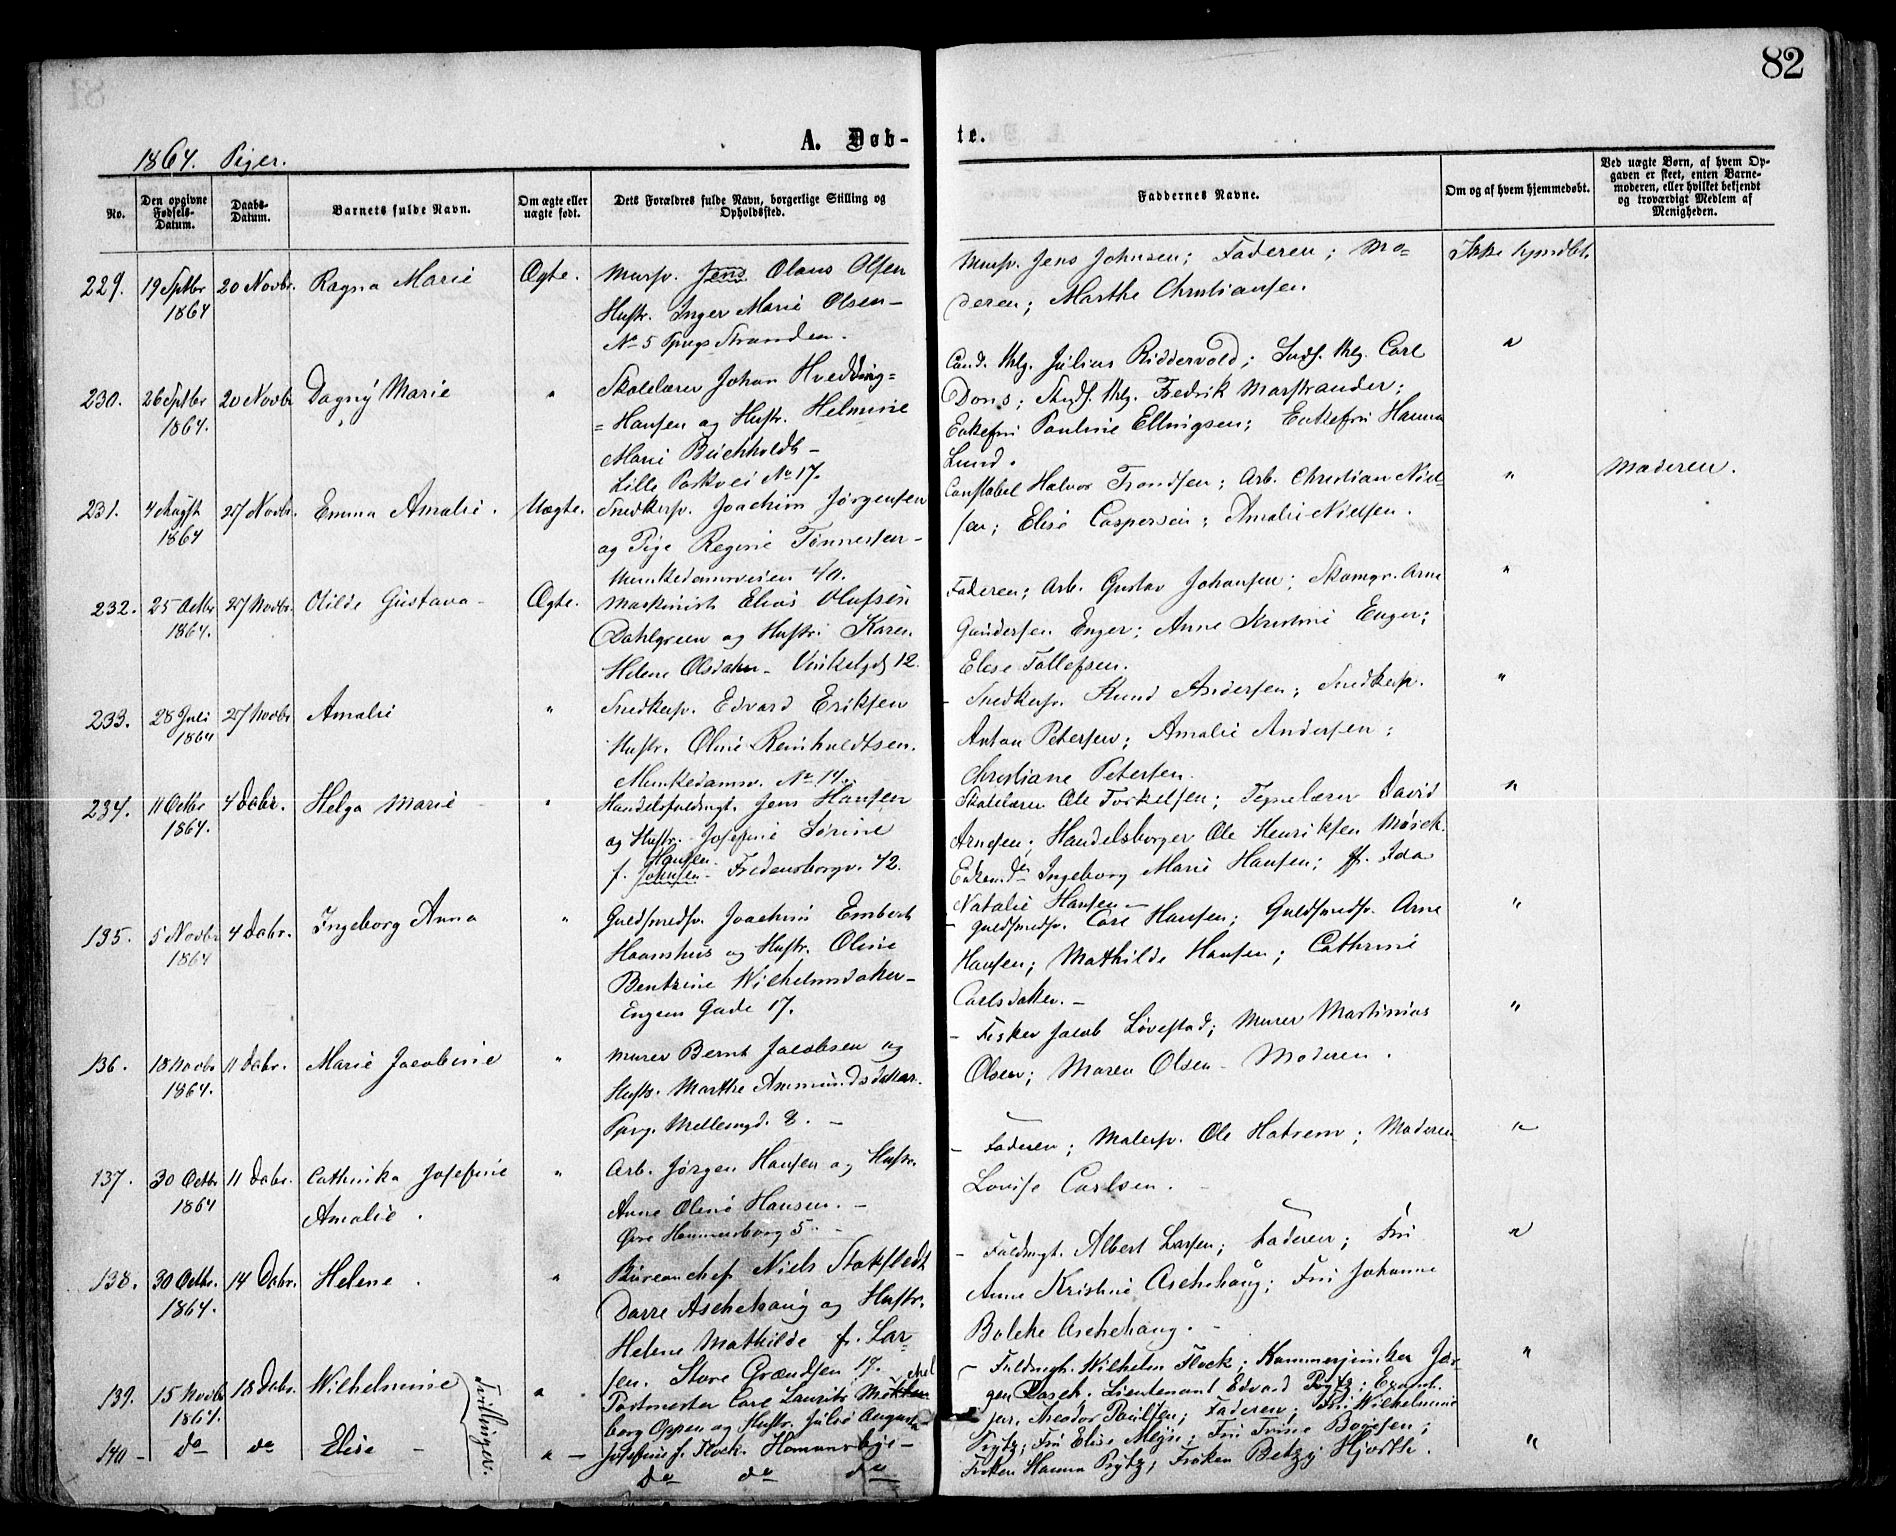 82
A. Døb-
te.
1864. Piger.
No.
Den opgivne Fødsels-Datum.
Daabs-Datum.
Barnets fulde Navn.
Om ægte eller uægte født.
Dets Forældres fulde Navn, borgerlige Stilling og Opholdssted.
Faddernes Navne.
Om og af hvem hjemmedøbt.
Ved uægte Børn, af hvem Opgaven er skeet, enten Barnemoderen, eller hvilket bekjendt og troværdigt Medlem af Menigheden.
229. 19 Septbr 20 Novbr. Ragna Marie Ægte. Mursv. Jens Olaus Olsen
1864 Hustr. Inger Marie Olsen -
No 5 Stranden.
Mursv. Jens Johnsen; Faderen; Mo= Ikke hjmdbt.
deren; Marthe Christiansen
230. 26 Septbr 20 Novbr Dagny Marie " Skolelærer Johan Hvedding=
1864. =Hansen og Hustr. Helmine
Marie Buchholdt -
Lille Parkvei No 17.
Cand. thlg. Julius Riddervold; Stud. thlg. Carl "
Dons; Stud. thlg. Fredrik Marstrander;
Enkefru Pauline Ellingsen; Enkefru Hanna
Lund.
231. 4 August 27 Novbr. Emma Amalie. Uægte. Snedkersv. Joachim Jørgensen
1864 og Pige Regine Tønnesen -
Munkedamsveien 40.
Constabel Halvor Trondsen; Arb. Christian Niel " Moderen.
sen; Elise Caspersen; Amalie Nielsen.
232. 25 Octbr 27 Novbr. Olilde Gustava - Ægte. Maskinist Elias Olufsen
1864. Dahlgreen og Hustr. Karen
Helene Olsdatter - Vinkelgd 12.
Faderen; Arb. Gustav Johansen; Skomgr. Arne "
Gundersen Enger; Anne Kristine Enger;
Elise Tollefsen.
233. 28 Juli 27 Novbr Amalie " Snedkersv. Edvard Eriksen
1864 Hustr. Oline Reinholdtsen.
Munkedamsv. No 14.
- Snedkersv. Knud Andersen; Snedkersv. "
Anton Petersen; Amalie Andersen;
Christiane Petersen.
234. 11 Octbr 4 Dcbr. Helga Marie - " Handelsfuldmgt. Jens Hansen
1864. og Hustr. Josefine Sørine
Hansen.
f. Johnsen - Fredensborgv. 42.
Skolelærer Ole Torkelsen; Tegnelærer David "
Arnesen; Handelsborger Ole Henriksen
Ingeborg Marie Hansen; Ida
Natalie Hansen -
135. 5 Novbr 4 Dcbr. Ingeborg Anna " Guldsmedsv. Joachim Embert
1864 Haanshus og Hustr. Oline
Bentzine Wilhelmsdatter -
Engens Gade 17.
- Guldsmedsv. Carl Hansen; Guldsmedsv. Arne "
Hansen; Mathilde Hansen; Cathrine
Carlsdatter. -
136. 18 Novbr 11 Dcbr. Marie Jacobine " Murer Bernt Jacobsen og
1864. Hustr. Marthe Ammundsdatter.
Mellemgd. 8. -
- Fisker Jacob Løvestad; Murer Martinius "
Olsen; Maren Olsen - Moderen.
137. 30 Octbr 11 Dcbr. Cathinka Josefine " Arb. Jørgen Hansen og Hustr.
1864 Amalie. Anne Oline Hansen. -
Øvre Hammersborg 5. -
- Faderen; Malersv. Ole Hatrem; Moderen "
Lovise Carlsen.
138. 30 Octbr. 14 Dcbr. Helene. " Bureauchef Niels Stokfledt
1864. Darre Aschehoug og Hustr.
Helene Mathilde f. Lar-
sen. Store Grændsen 17.
- Fuldmgt. Albert Larsen; Faderen; Fru "
Anne Kristine Aschehoug; Fru Johanne
Bolette Aschehoug. -
139. 15 Novbr 18 Dcbr. Wilhelmine " Postmester Carl Laurits
1864. Tvillinger. Oppen og Hustr. Julie Augusta
Josefine f. Flock. Homansbye -
- Fuldmgt. Wilhelm Flock; Kammerjunker Jør- "
gen Lieutenant Edvard Prytz; Examl.
jur. Theodor Poulsen; Faderen; Fru Wilhelmine
Prytz; Fru Elise Fru Trine Boyesen;
140 - do do Elise - " - do do do
Frøken Hanna Prytz; Frøken Betzy Hjorth. "